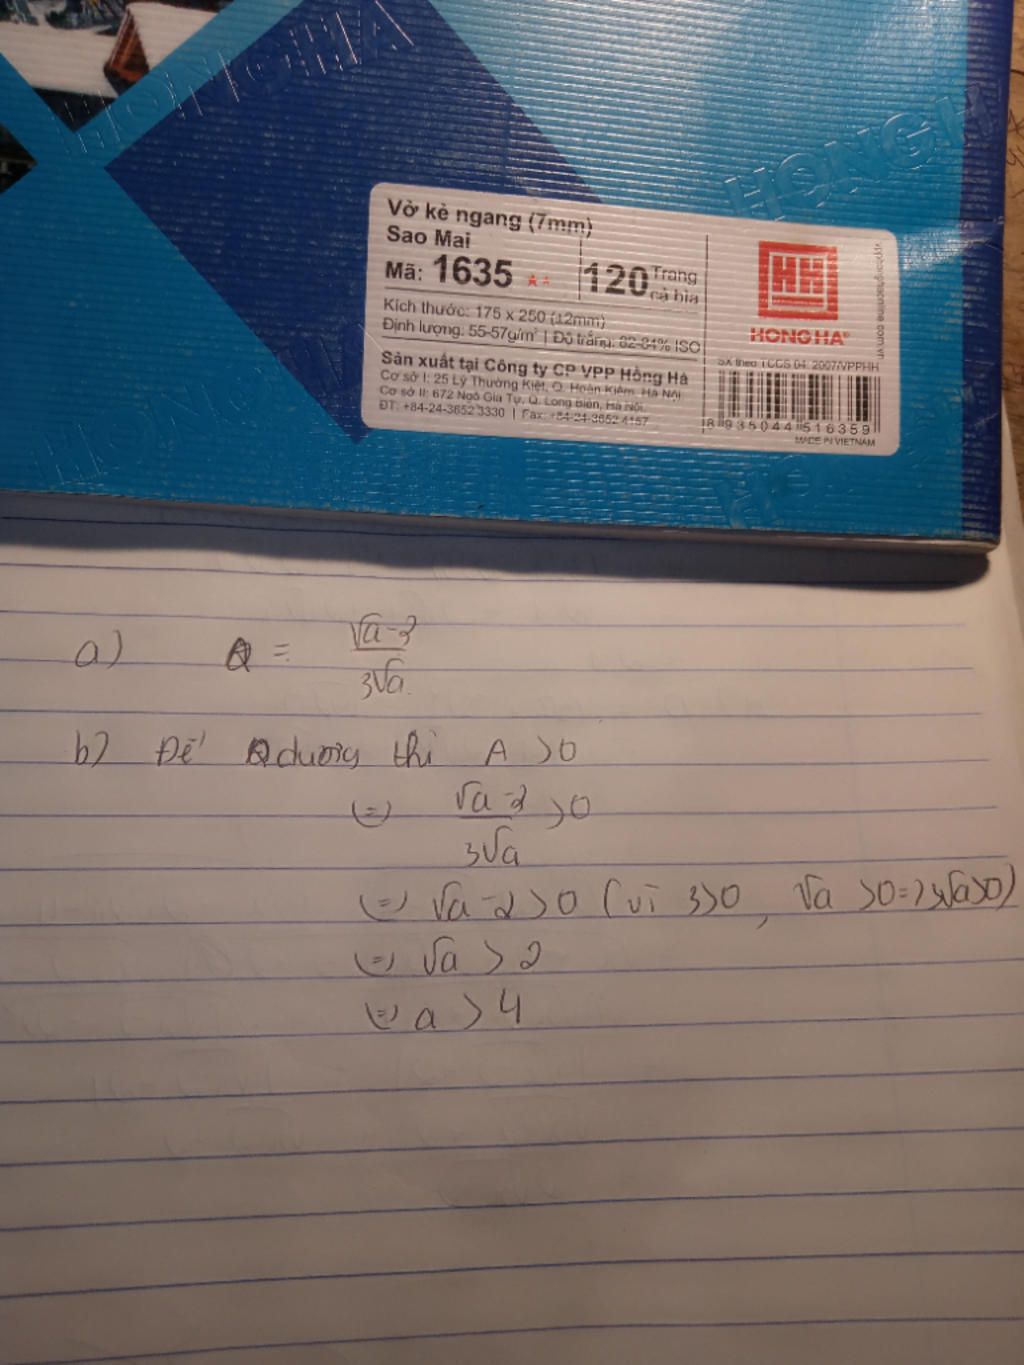 HONGHA
HONGHA
HONGHA
Vở kẻ ngang (7mm)
Sao Mai
Mã: 1635 ★★
120 Trang cả bìa
Kích thước: 175 x 250 (±2mm)
Định lượng: 55-57g/m² | Độ trắng: 82-84% ISO
Sản xuất tại Công ty CP VPP Hồng Hà
Cơ sở I: 25 Lý Thường Kiệt, Q. Hoàn Kiếm, Hà Nội
Cơ sở II: 672 Ngô Gia Tự, Q. Long Biên, Hà Nội
ĐT: +84-24-3652 3330 | Fax: +84-24-3652 4157
HH
HONG HA®
SX theo TCCS 04: 2007/VPPHH
8 935044 516359
MADE IN VIETNAM
vpphonghaonline.com.vn
a) Q = (√a - 2)/(3√a)
b) Để Q dương thì A > 0
(=) (√a - 2)/(3√a) > 0
(=) √a - 2 > 0 (vì 3>0, √a >0 => 3√a>0)
(=) √a > 2
(=) a > 4